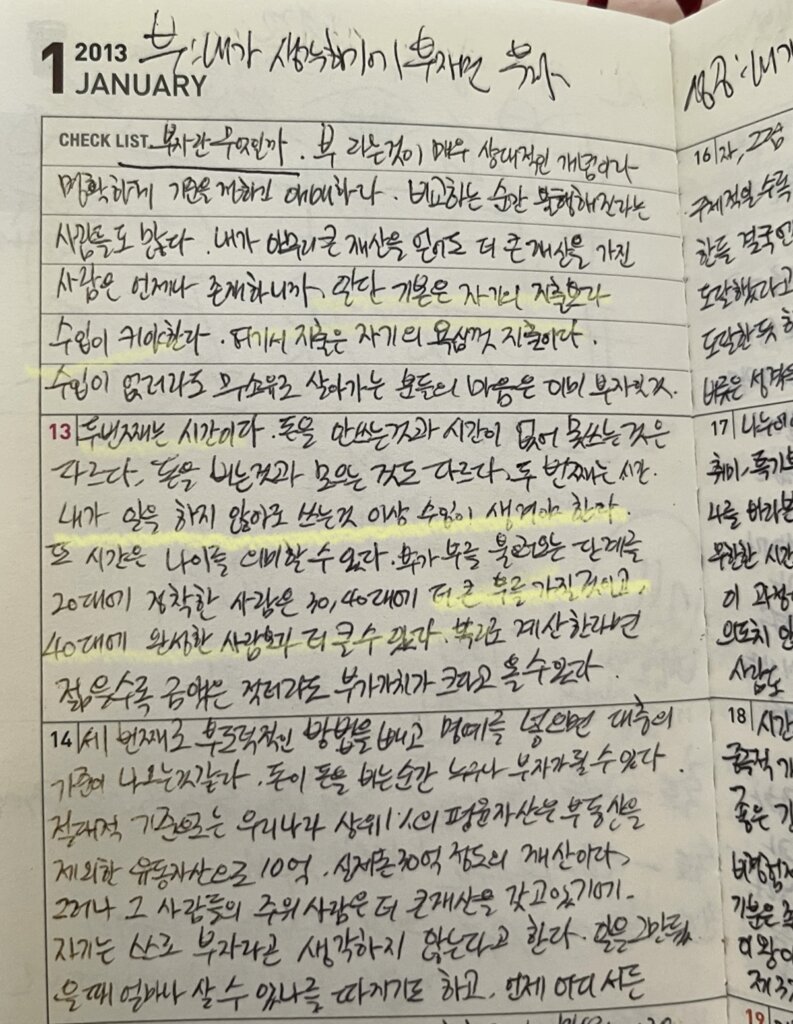 1 2013 JANUARY
부: 내가 생각하기에 부자면 부자
CHECK LIST 부자란 무엇일까. 부 라는것이 매우 상대적인 개념이라
명확하게 기준을 정하긴 애매하나. 비교하는 순간 불행해진다라는
사람들도 많다. 내가 아무리 큰 재산을 얻어도 더 큰 재산을 가진
사람은 언제나 존재하니까. 일단 기본은 자기의 지출보다
수입이 커야한다. 여기서 지출은 자기의 욕심껏 지출이다.
수입이 없더라도 무소유로 살아가는 분들의 마음은 이미 부자일것.
13 두번째는 시간이다. 돈을 안쓰는것과 시간이 없어 못쓰는것은
다르다. 돈을 버는것과 모으는 것도 다르다. 두 번째는 시간.
내가 일을 하지 않아도 쓰는것 이상 수입이 생겨야 한다.
또 시간은 나이를 의미할 수 있다. 부가 부를 불러오는 단계를
20대에 정착한 사람은 30,40대에 더 큰 부를 가질것이고,
40대에 완성한 사람보다 더 클수 있다. 복리로 계산한다면
젊을수록 금액은 작더라도 부가가치가 크다고 볼수있다.
14 세 번째로 부도덕적인 방법을 빼고 명예를 넣으면 대충의
기준이 나오는것같다. 돈이 돈을 버는순간 누구나 부자가될 수 있다.
절대적 기준으로는 우리나라 상위1%의 평균자산은 부동산을
제외한 유동자산으로 10억. 실제론 30억 정도의 재산이다.
그러나 그 사람들의 주위 사람은 더 큰재산을 갖고있기에.
자기는 스스로 부자라곤 생각하지 않는다고 한다. 일을 그만뒀
을때 얼마나 살 수 있나를 따지기도 하고. 언제 어디 서든
성공: 내가
16 자, 그럼
구체적일 수록
한들 결국엔
도달했다고
도달한듯 하
17 나누어
취미, 특기
나를 바라본
무한한 시간
이 과정
의도치 않
사람도
18 시간
좋은
기분은
19